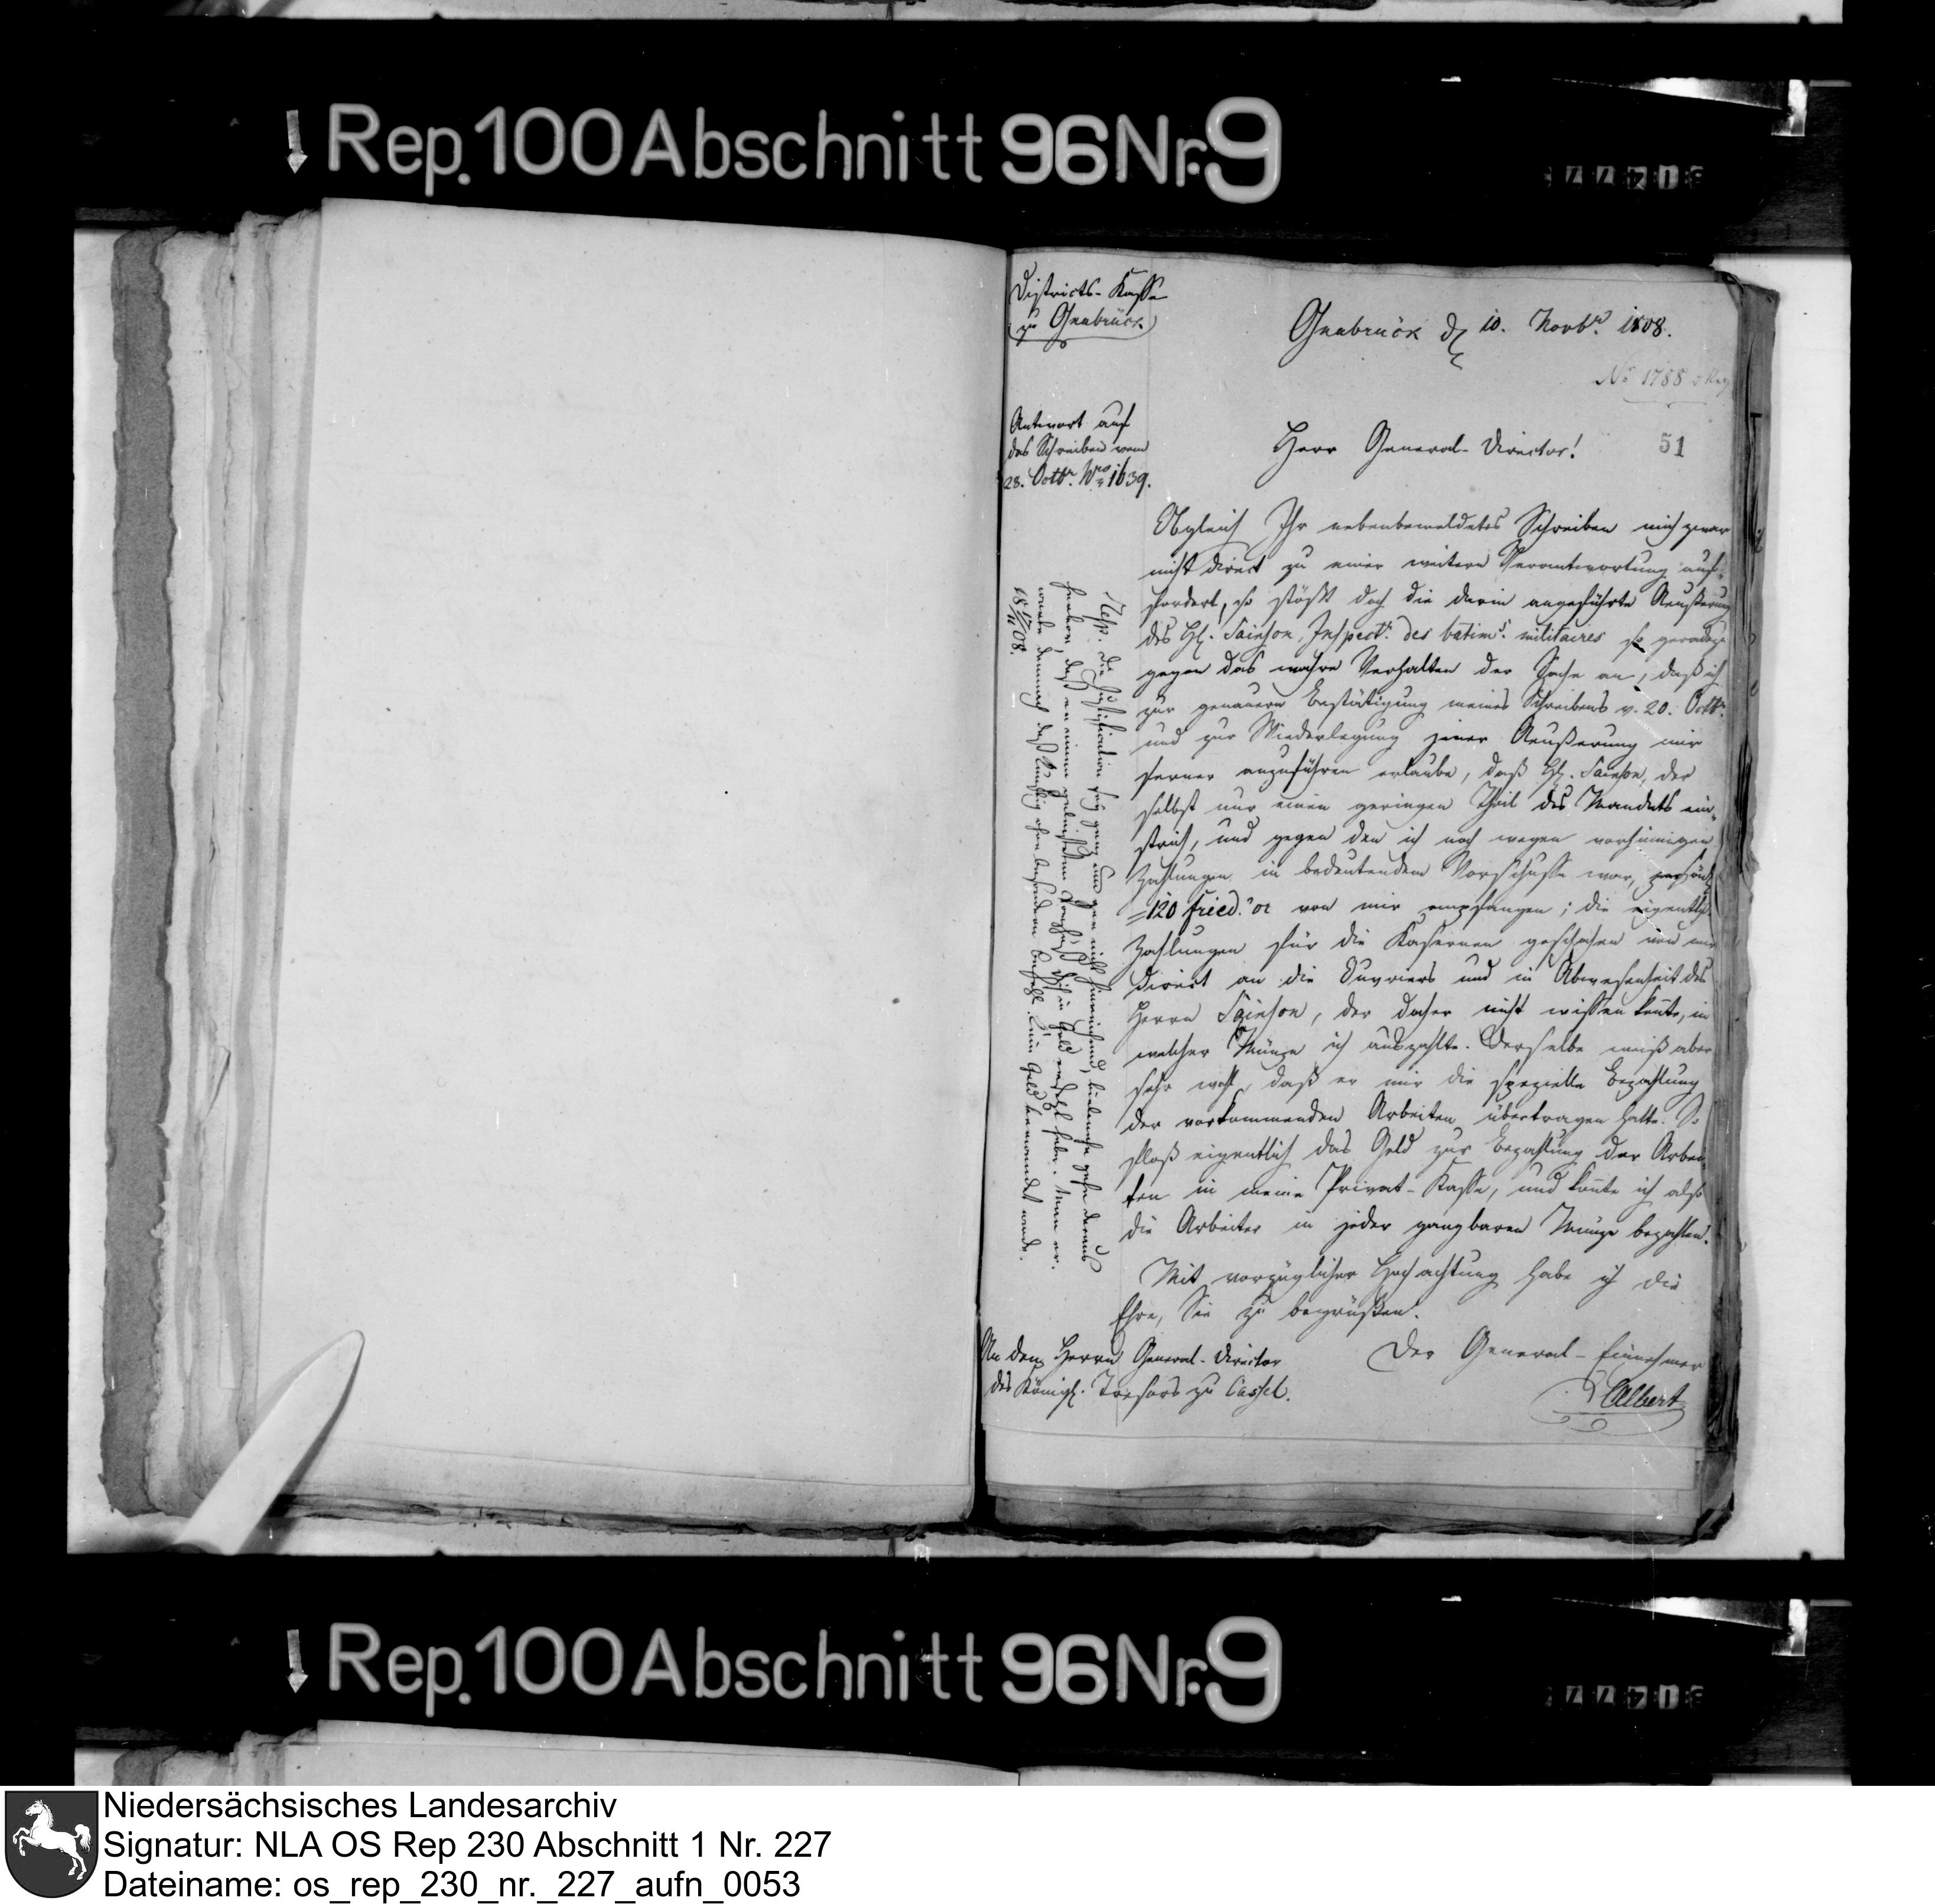 Rep. 100 Abschnitt 96 Nr. 9
Districts-Kasse
zu Osnabrück
Osnabrück d 10. Novbr. 1808.
No 1788
Antwort auf
das Schreiben vom
28. Octbr. Nro 1639.
Herr General-Director!
51
Obgleich Ihr nebenbemeldetes Schreiben mich zwar
nicht direct zu einer weitern Verantwortung auf-
fordert, so stößt doch die darin angeführte Aeußerung
des H. Sainson, Inspectr. des batims. militaires so geradezu
gegen das wahre Verhalten der Sache an, daß ich
zur genauern Bestätigung meines Schreibens v. 20. Octbr.
und zur Wiederlegung jener Aeußerung mir
ferner anzuführen erlaube, daß H. Sainson, der
selbst nur einen geringen Theil des Mandats ein-
strich, und gegen den ich noch wegen vorherigen
Zahlungen in bedeutendem Vorschusse war,
120 fried.'or von mir empfangen; die eigentl.
Zahlungen für die Kasernen geschahen von mir
direct an die Ouvriers und in Abwesenheit des
Herrn Sainson, der daher nicht wissen konnte, in
welcher Münze ich auszahlte. Derselbe weiß aber
sehr wohl, daß er mir die spezielle Bezahlung
der vorkommenden Arbeiten übertragen hatte. So
floß eigentlich das Geld zur Bezahlung der Arbei-
ten in meine Privat-Kasse, und konnte ich also
die Arbeiter in jeder gangbaren Münze bezahlen.
Mit vorzüglicher Hochachtung habe ich die
Ehre, Sie zu begrüßen.
Der General-Einnehmer
Albert
An den Herrn General-Director
des Königl. Tresors zu Cassel.
Resp. die Justification sey ganz und gar nicht hinreichend, vielmehr gehe daraus
hervor, daß er einen geleisteten Vorschuß sich in Gold ersetzt habe. Man er-
warte demnach daß künftig ohne besondern Befehl kein Gold verwendet werde.
18 17/11 08.
Rep. 100 Abschnitt 96 Nr. 9
Niedersächsisches Landesarchiv
Signatur: NLA OS Rep 230 Abschnitt 1 Nr. 227
Dateiname: os_rep_230_nr._227_aufn_0053